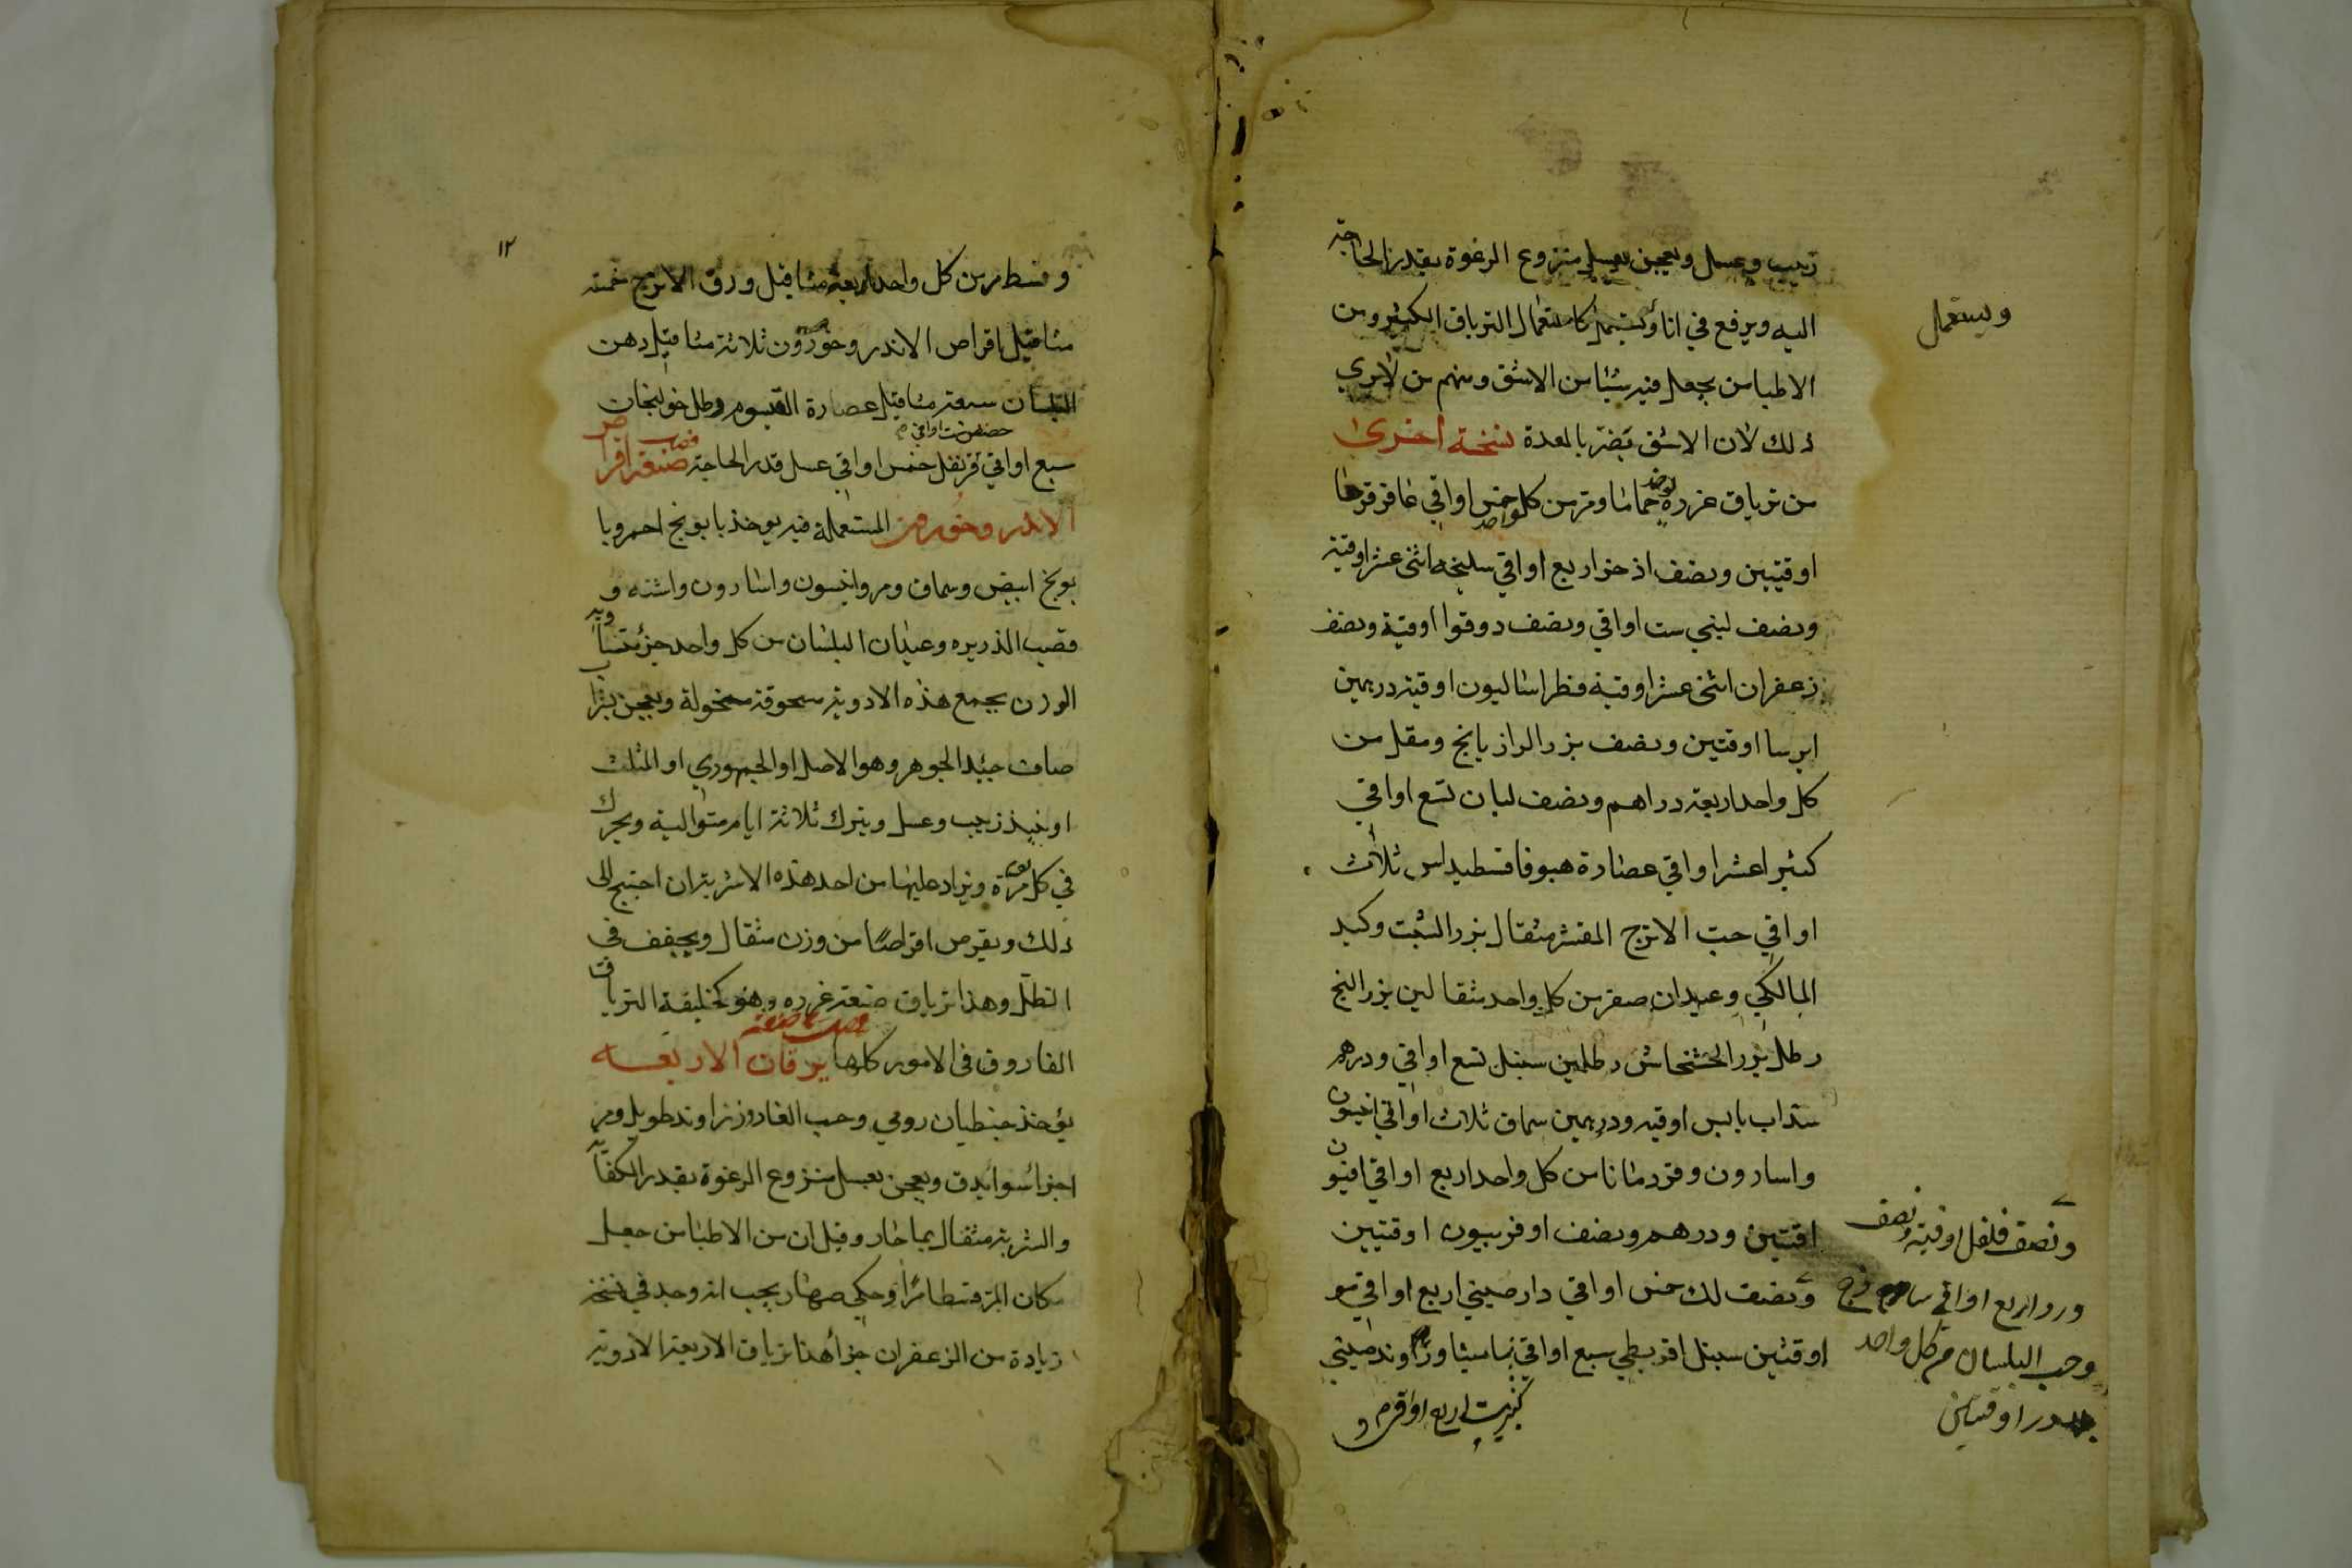 زبيب وعسل ويعجن بعسل منزوع الرغوة بقدر الحاجة
اليه ويرفع في اناء ويستعمل كاستعمال الترياق الكبير ومن
ويستعمل
الاطبا من يجعل فيه شيئا من الاشق ومنهم من لا يرى
ذلك لان الاشق يضر بالمعدة نسخة أخرى
من ترياق عزره يوخذ حماما ومر من كل واحد خمس اواقي عاقرقرحا
اوقيتين ونصف اذخر اربع اواقي سليخه اثنى عشر اوقية
ونصف لبني ست اواقي ونصف دوقوا اوقية ونصف
زعفران اثنى عشر اوقية فطراساليون اوقية درهمين
ايرسا اوقتين ونصف بزر الرازيانج ومقل من
كل واحد اربعة دراهم ونصف لبان تسع اواقي
كثيرا عشر اواقي عصارة هبوفاقسطيداس ثلاث
اواقي حب الاترج المقشر مثقال بزر الشبت وكبد
المالكي وعيدان صفر من كل واحد مثقالين بزر البنج
رطل بزر الخشخاش رطلين سنبل تسع اواقي ودرهم
سذاب يابس اوقيه ودرهمين سماق ثلاث اواقي انيسون
واسارون وقردمانا من كل واحد اربع اواقي افيون
اقتين ودرهم ونصف اوفربيون اوقتيين
ونصف فلفل اوقية ونصف
ونصف لك خمس اواقي دارصيني اربع اواقي مو
ورد اربع اواقي
اوقتين سنبل اقريطي سبع اواقي وزراوند صيني
وحب البلسان من كل واحد
اوقيتين
كبريت اربع اواقي و
١٢
وقسط مر من كل واحد اربعة مثاقيل ورق الاترج خمسة
مثاقيل اقراص الاندروخورون ثلاثة مثاقيل دهن
البلسان سبعة مثاقيل عصارة القيسوم رطل خولنجان
حضض ست اواقي
سبع اواقي قرنفل خمس اواقي عسل قدر الحاجة صنعة اقراص
الاندروخورون المستعملة فيه يوخذ بابونج احمر وبا
بونج ابيض وسماق ومر وانيسون واسارون واشنه و
قصب الذريره وعيدان البلسان من كل واحد جزء متساوية
الوزن يجمع هذه الادوية مسحوقة منخولة ويعجن بشراب
صاف جيد الجوهر وهو الاصل او الجمهوري او المثلث
او نبيذ زبيب وعسل ويترك ثلاثة ايام متوالية ويحرك
في كل يوم مرة ويزاد عليها من احد هذه الاشربة ان احتيج الى
ذلك ويقرص اقراصًا من وزن مثقال ويجفف في
الظل وهذا ترياق صنعة عزره وهو كخليفة الترياق
الفاروق في الامور كلها يرقان الاربعه
يؤخذ جنطيان رومي وحب الغار وزراوند طويل ومر
اجزا سوا يدق ويعجن بعسل منزوع الرغوة بقدر الكفاية
والشربة مثقال بما حار وقيل ان من الاطبا من جعل
مكان المر قسطا مرًا وحكي صهاربخت انه وجد في نسخة
زيادة من الزعفران جزأ هذا ترياق الاربعة الادوية